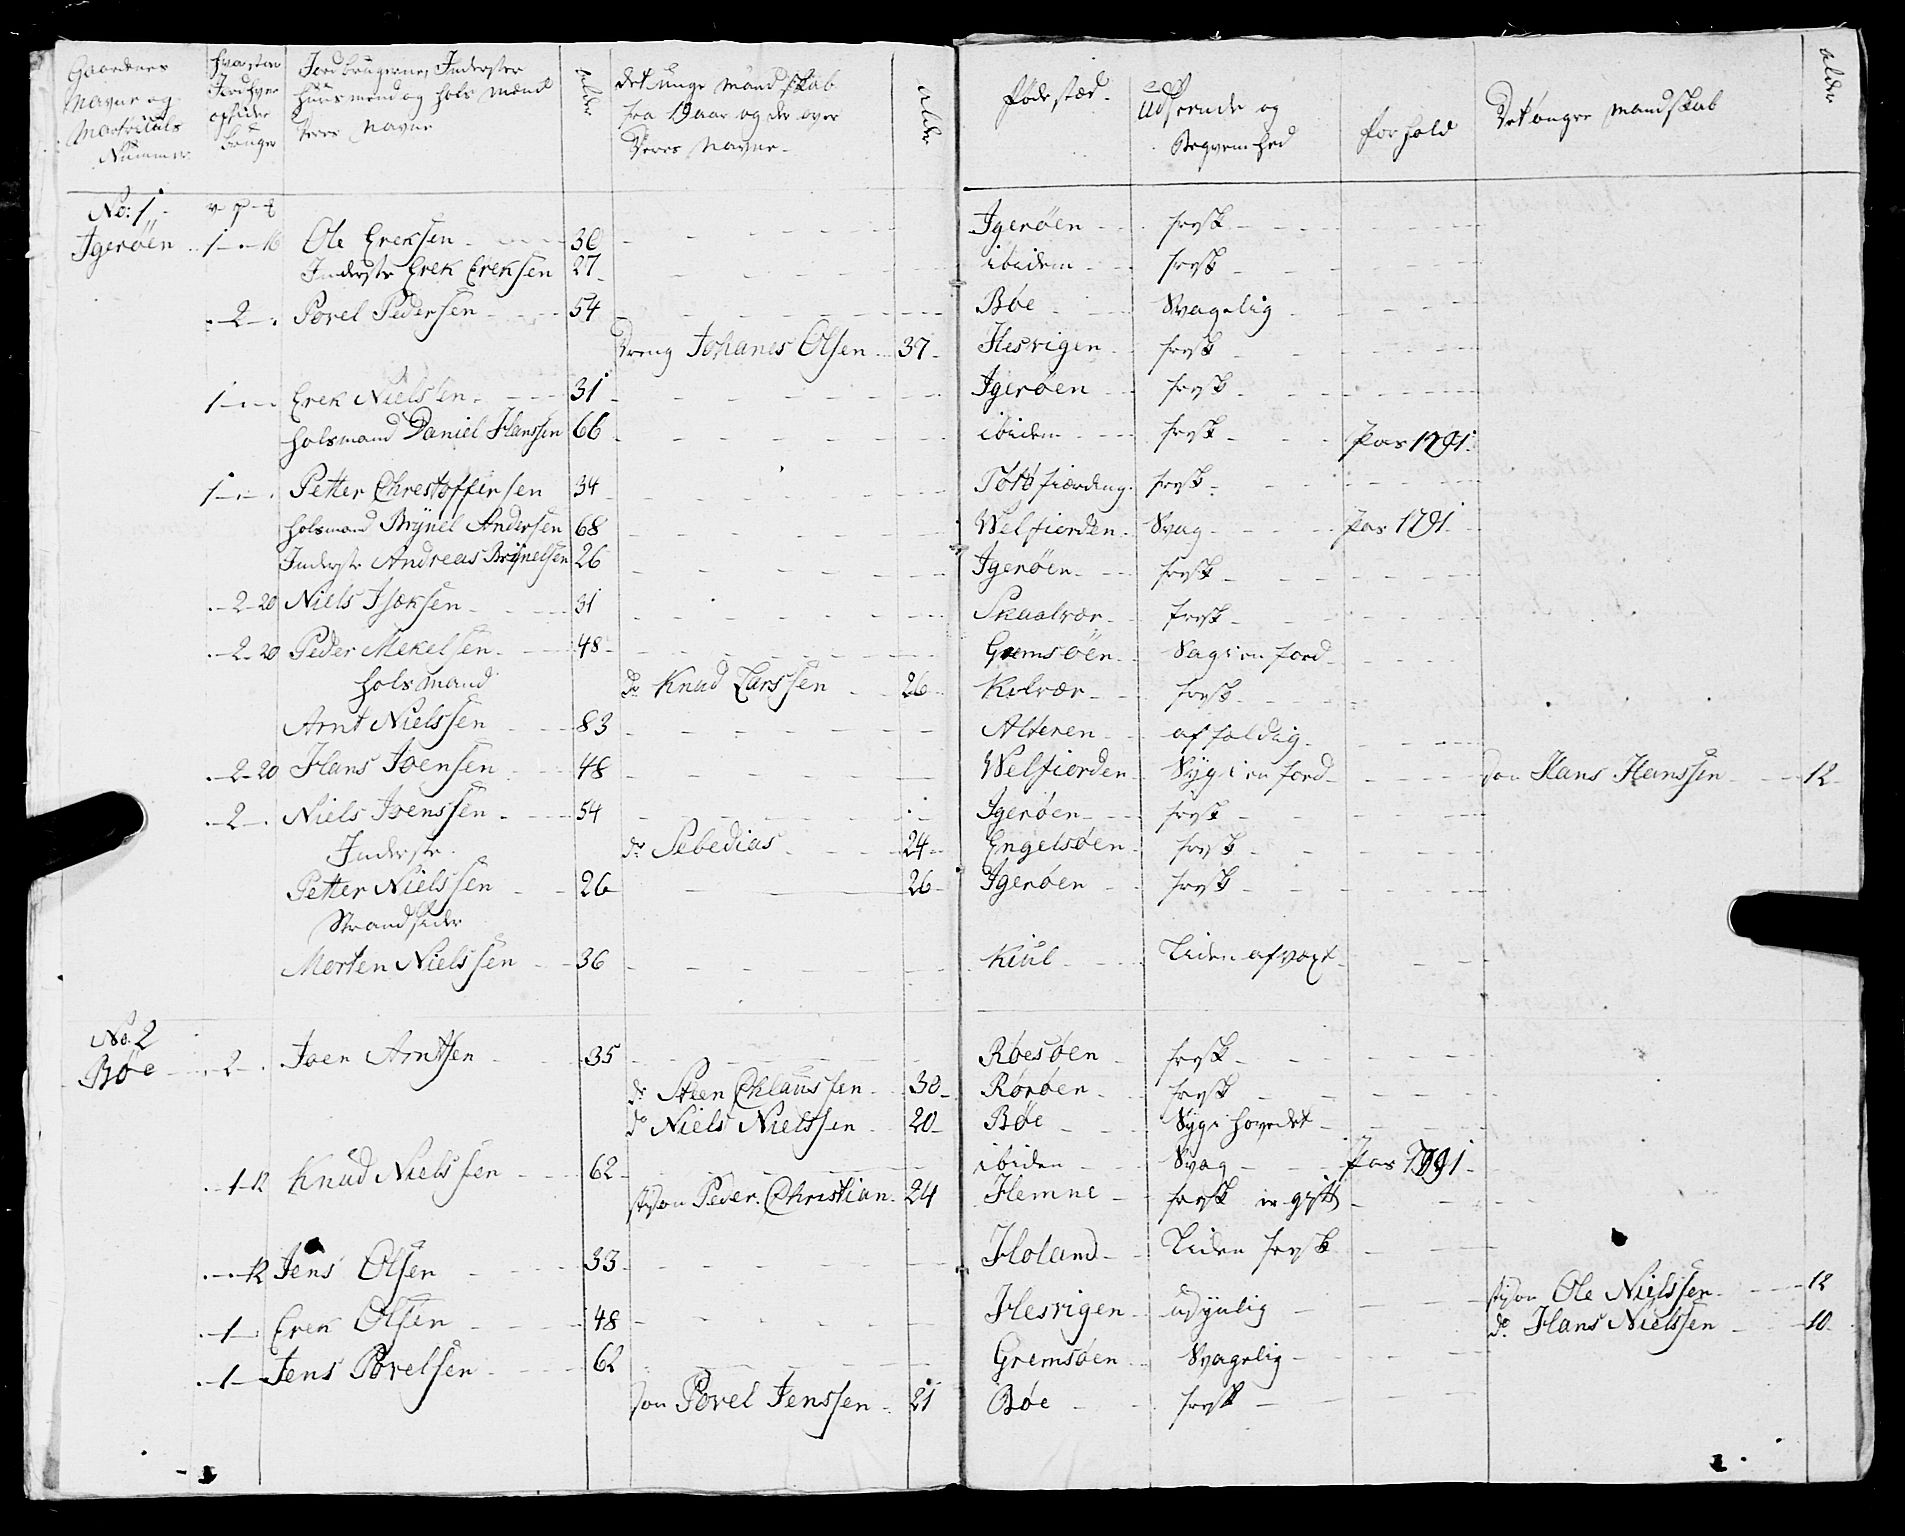 Gaardenes Navne og Martriculs Nummer
Hvor stor Jord hver opsider bruger
Jordbrugerne, Inderster Huusmænd og Holsmænd Deres Navne
Alder
Det unge Mandskab fra 19 aar og der over Deres Navne
Alder
Føde stæd
Udseende og Begvemhed
Forhold
Det ongre Mandskab
Alder
No: 1 v p
Igerøen 1 - 16 Ole Ereksen 30 Igerøen frisk
Inderste Erek Ereksen 27 ibidem frisk
2 Povel Pedersen 54 Bøe Svagelig
Dreng Johanes Olsen 37 Hesvigen frisk
1 Erek Nielssen 31 Igerøen frisk
Holsmand Daniel Hanssen 66 ibidem frisk Pas 1791
1 Petter Chrestoffersen 34 Totfiærding frisk
Holsmand Brynel Andersen 68 Welfiorden Svag Pas 1791
Inderste Andreas Brynelsen 26 Igerøen frisk
2 - 20 Niels Isaksen 31 Skaalvær frisk
2 - 20 Peder Mekelsen 48 Gremsøen
Holsmand do Knud Larssen 26 Kvlvær frisk
Arnt Nielssen 83 Alteren affældig
2 - 20 Hans Joensen 48 Welfiorden Søn Hans Hanssen 12
2 Niels Joenssen 54 Igerøen frisk
Inderste do Sebedias 24 Engelsøen frisk
Petter Nielssen 26 26 Igerøen frisk
Strandsider
Morten Nielssen 36 Kiul Liden af væxt
No. 2
Bøe 2 Joen Arntsen 35 Røesøen frisk
do Steen Chlaussen 30 Rørøen frisk
do Niels Nielssen 20 Bøe Syg i hovedet
1 - 12 Knud Nielssen 62 ibiden Svag Pas 1791
Stifsøn Peder Christian 24 Hemne frisk er gift
12 Jens Olsen 33 Holand Liden frisk
1 Erek Olsen 48 Hesvigen udyulig Stifsøn Ole Nielssen 12
do Hans Nielssen 10
1 Jens Povelsen 62 Gremsøen Svagelig
Søn Povel Jenssen 21 Bøe frisk